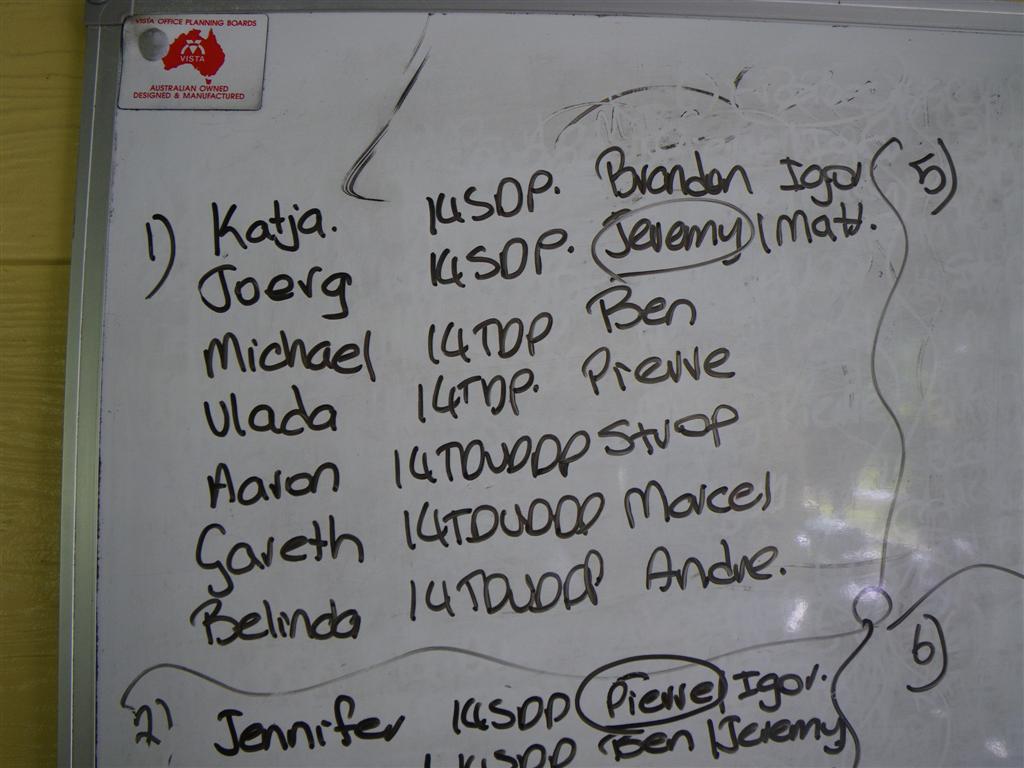 VISTA OFFICE PLANNING BOARDS
VISTA
AUSTRALIAN OWNED
DESIGNED & MANUFACTURED
1) Katja. 14SDP. Brandon Igor
Joerg 14SDP. Jeremy / Matt.
Michael 14TDP Ben
Vlada 14TDP. Pierre
Aaron 14TDUDDP Strop
Gareth 14TDUDDP Marcel
Belinda 14TDUDDP Andre.
2) Jennifer 14SDD Pierre Igor.
14SDD Ben / Jeremy
5)
6)